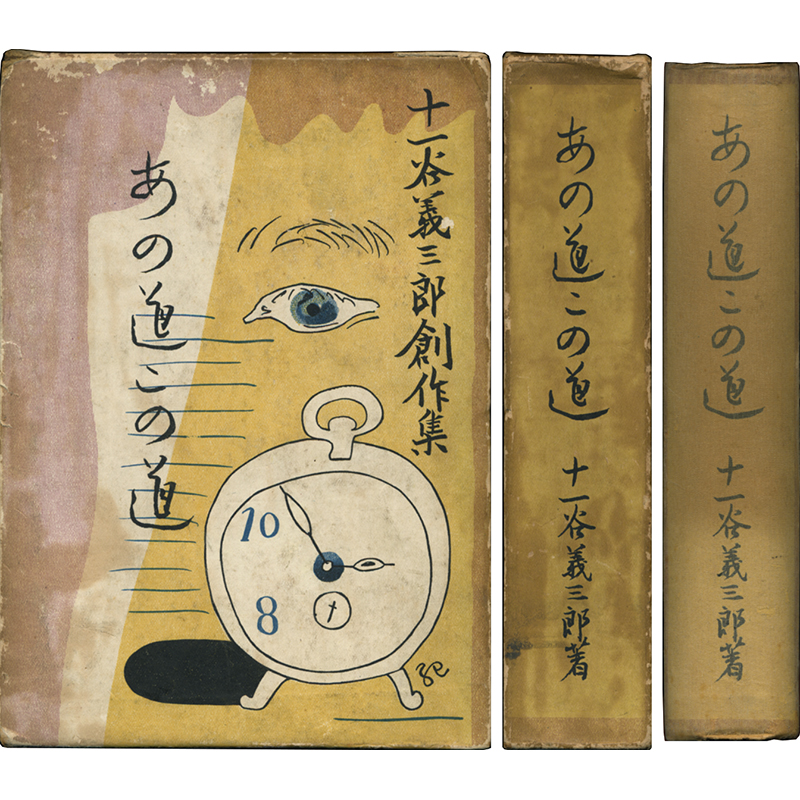 十一谷義三郎創作集
あの道この道
10
8
あの道この道
十一谷義三郎著
あの道この道
十一谷義三郎著